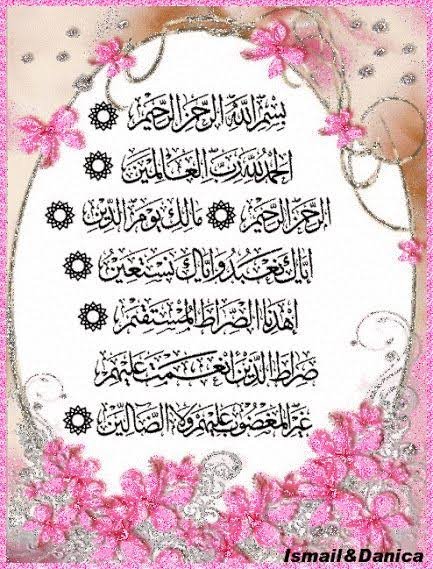 بِسْمِ اللَّهِ الرَّحْمَنِ الرَّحِيمِ
الْحَمْدُ لِلَّهِ رَبِّ الْعَالَمِينَ
الرَّحْمَنِ الرَّحِيمِ مَالِكِ يَوْمِ الدِّينِ
إِيَّاكَ نَعْبُدُ وَإِيَّاكَ نَسْتَعِينُ
اهْدِنَا الصِّرَاطَ الْمُسْتَقِيمَ
صِرَاطَ الَّذِينَ أَنْعَمْتَ عَلَيْهِمْ
غَيْرِ الْمَغْضُوبِ عَلَيْهِمْ وَلَا الضَّالِّينَ
Ismail&Danica